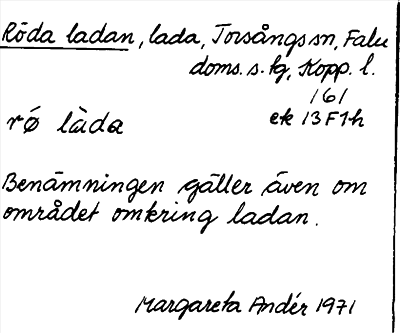 Röda ladan, lada, Torsångs sn, Falu
doms. s. tg, Kopp. l.
161
rø làda
ek 13F1h
Benämningen gäller även om
området omkring ladan.
Margareta Andér 1971